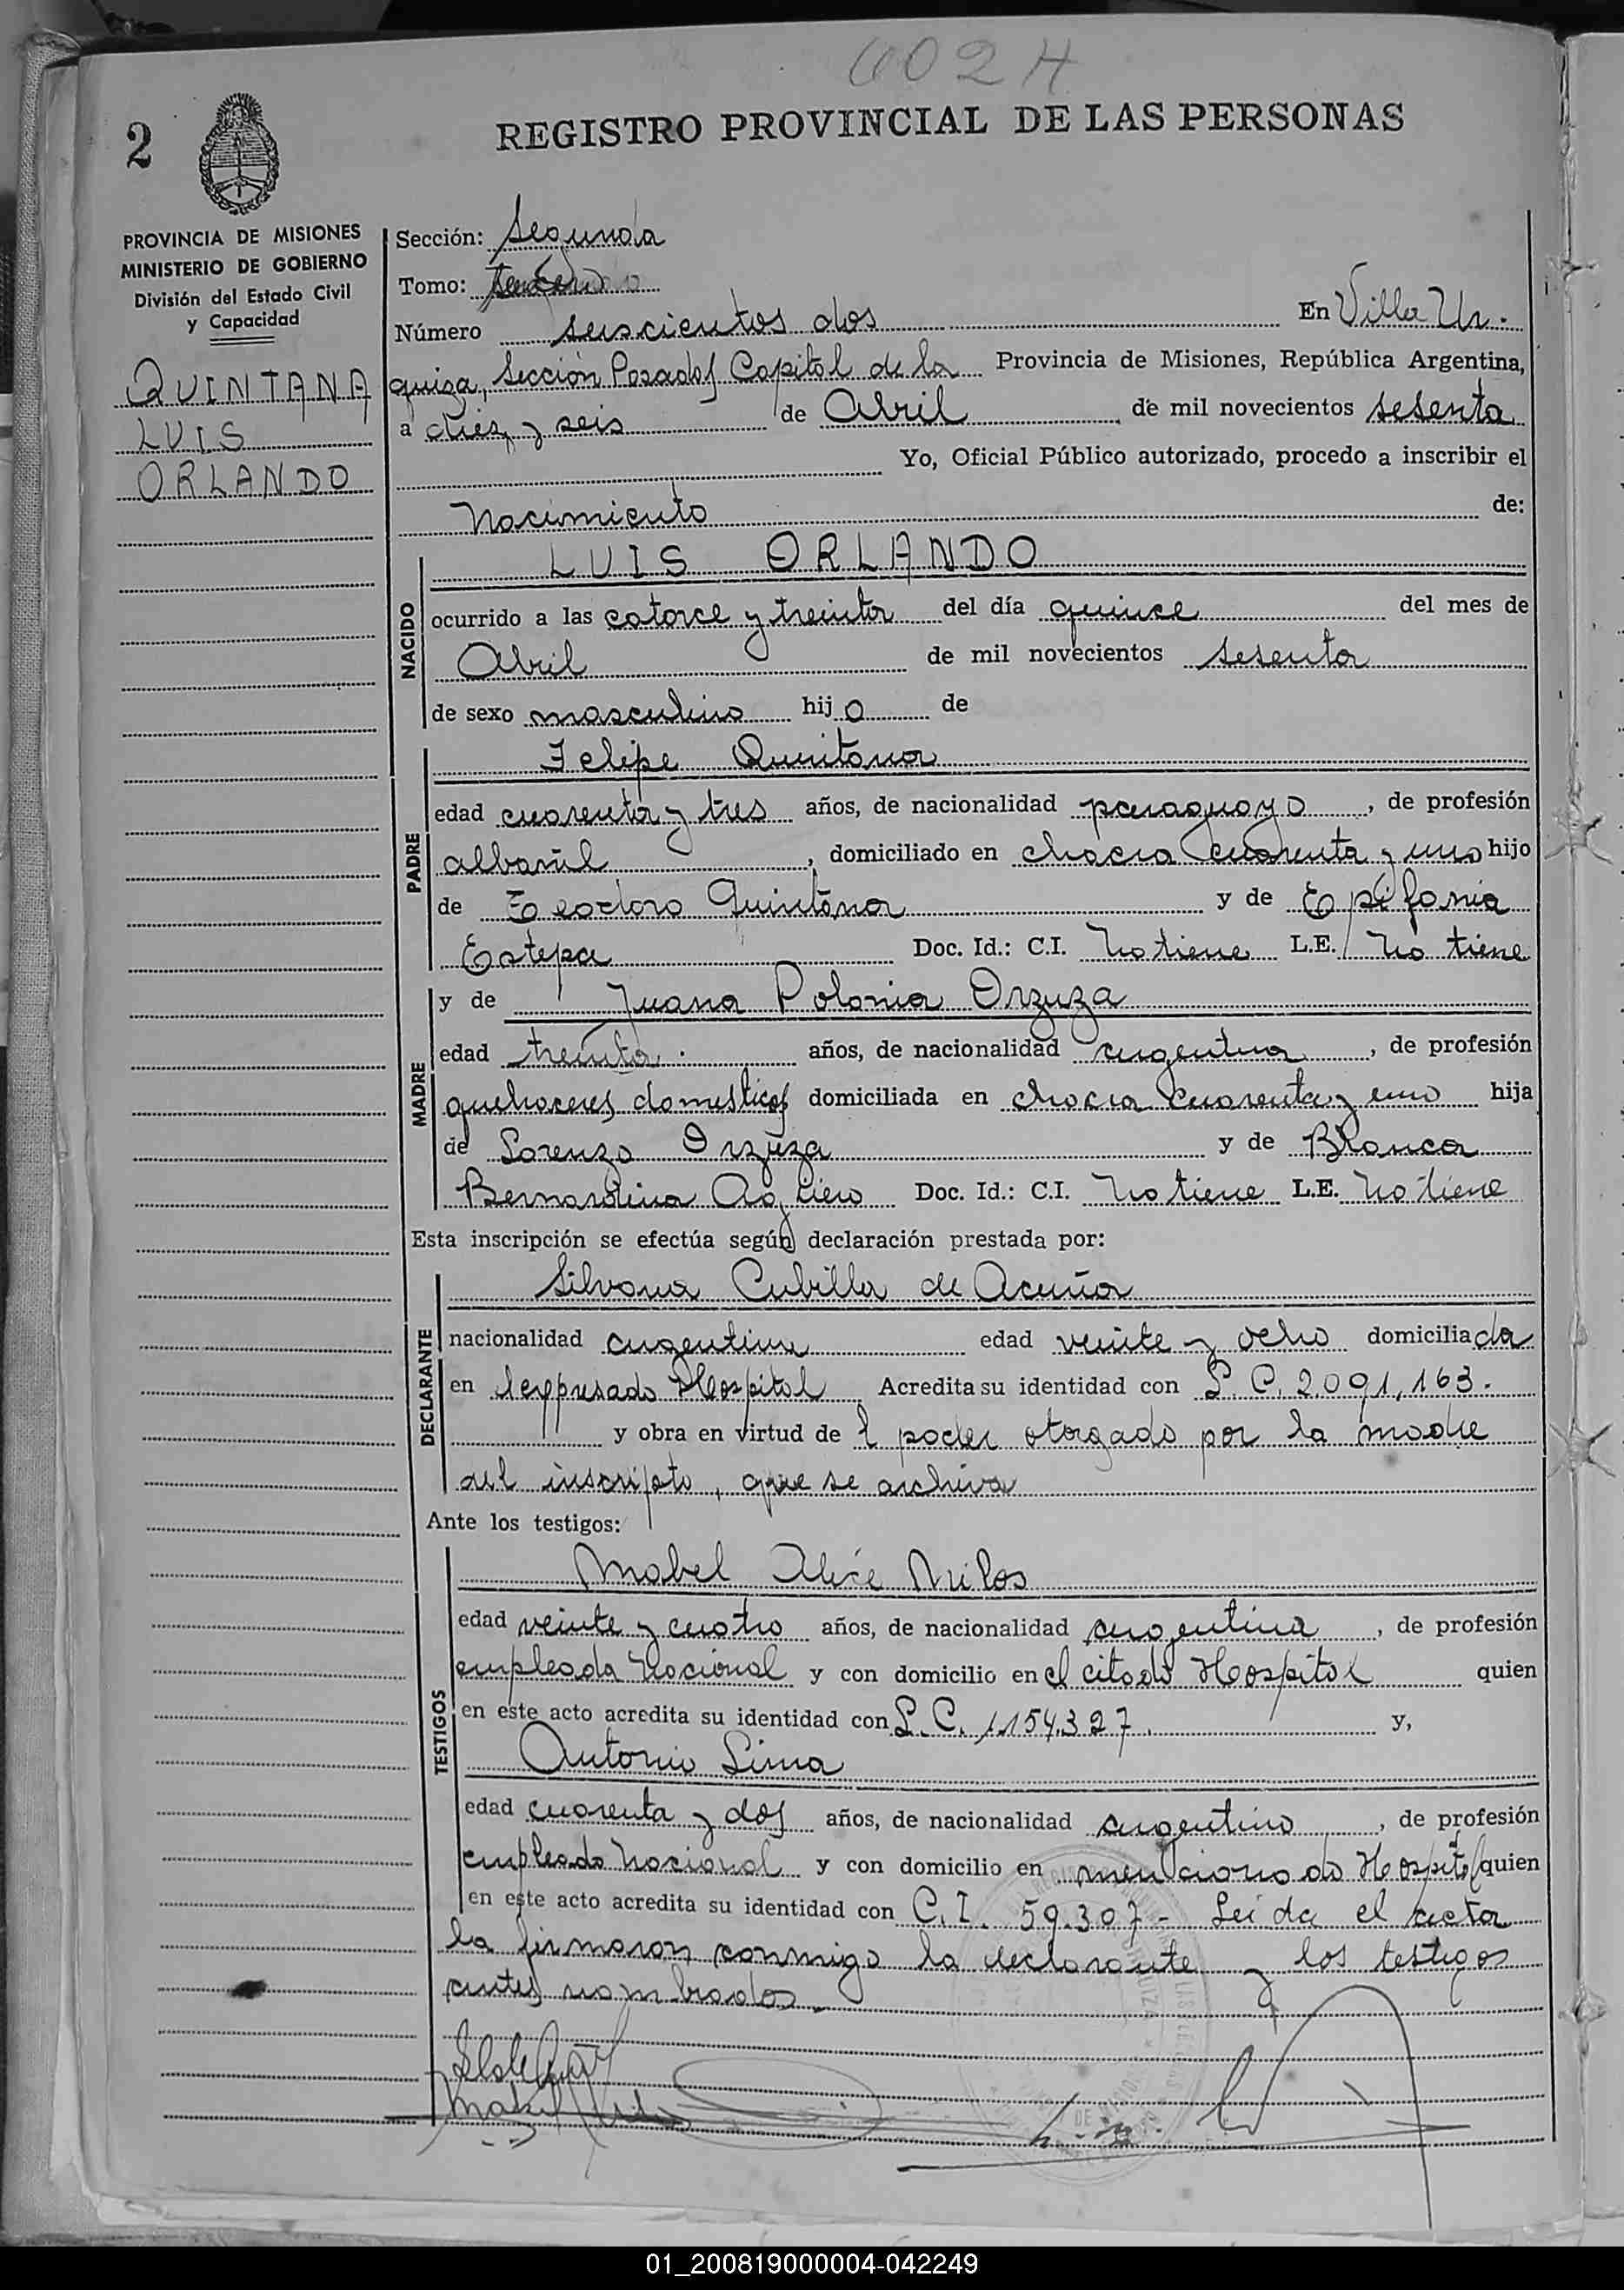 602
2
REGISTRO PROVINCIAL DE LAS PERSONAS
PROVINCIA DE MISIONES
MINISTERIO DE GOBIERNO
División del Estado Civil
y Capacidad
QUINTANA
LUIS
ORLANDO
Sección: Segunda
Tomo: tercero
Número seiscientos dos En Villa Ur-
quiza, Sección Posadas Capital de la Provincia de Misiones, República Argentina,
a diez y seis de Abril de mil novecientos sesenta
Yo, Oficial Público autorizado, procedo a inscribir el
Nacimiento de:
NACIDO
LUIS ORLANDO
ocurrido a las catorce y treinta del día quince del mes de
Abril de mil novecientos sesenta
de sexo masculino hijo de
PADRE
Felipe Quintana
edad cuarenta y tres años, de nacionalidad paraguayo, de profesión
albañil, domiciliado en chacra cuarenta y uno hijo
de Teodoro Quintana y de Epifania
Estepa Doc. Id.: C.I. No tiene L.E. No tiene
MADRE
y de Juana Polonia Orzuza
edad treinta años, de nacionalidad argentina, de profesión
quehaceres domesticos domiciliada en chacra cuarenta y uno hija
de Lorenzo Orzuza y de Blanca
Bernardina Agüero Doc. Id.: C.I. No tiene L.E. No tiene
Esta inscripción se efectúa según declaración prestada por:
DECLARANTE
Silvana Cubilla de Acuña
nacionalidad argentina edad veinte y ocho domiciliada
en el expresado Hospital Acredita su identidad con L.C. 2.091,163.
y obra en virtud del poder otorgado por la madre
del inscripto, que se archiva
Ante los testigos:
TESTIGOS
Mabel Alice
edad veinte y cuatro años, de nacionalidad argentina, de profesión
empleada Nacional y con domicilio en el citado Hospital quien
en este acto acredita su identidad con L.C. 1.154.327. y,
Antonio Lima
edad cuarenta y dos años, de nacionalidad argentino, de profesión
empleado Nacional y con domicilio en mencionado Hospital quien
en este acto acredita su identidad con C.I. 59.307- Leida el acta
la firmaron conmigo la declarante y los testigos
antes nombrados.
01_200819000004-042249